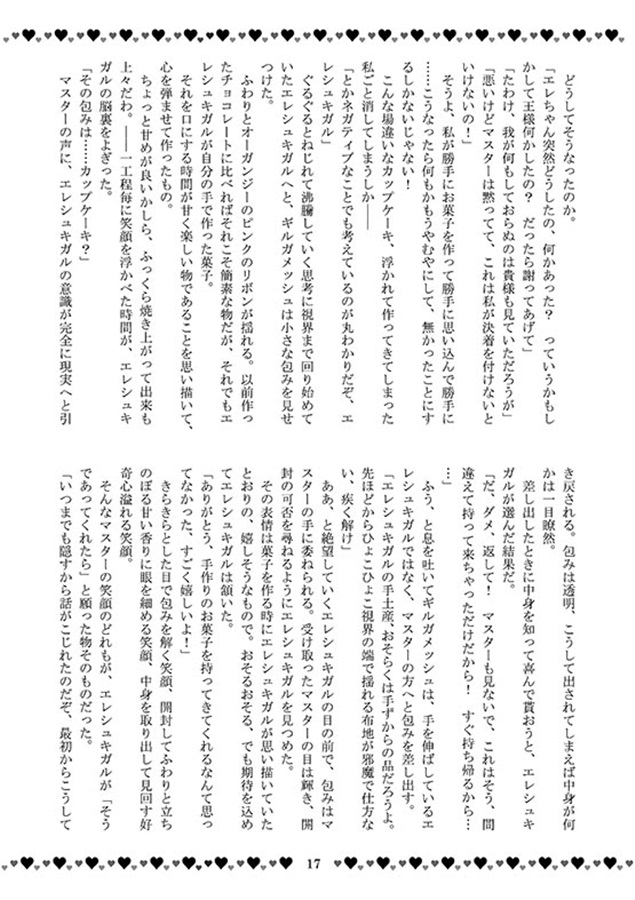 どうしてそうなったのか。
「エレちゃん突然どうしたの、何かあった？　っていうかもし
かして王様何かしたの？　だったら謝ってあげて」
「たわけ、我が何もしておらぬのは貴様も見ていただろうが」
「悪いけどマスターは黙ってて、これは私が決着を付けないと
いけないの！」
そうよ、私が勝手にお菓子を作って勝手に思い込んで勝手に
……こうなったら何もかもうやむやにして、無かったことにす
るしかないじゃない！
こんな場違いなカップケーキ、浮かれて作ってきてしまった
私ごと消してしまうしか――
「とかネガティブなことでも考えているのが丸わかりだぞ、エ
レシュキガル」
ぐるぐるとねじれて沸騰していく思考に視界まで回り始めて
いたエレシュキガルへと、ギルガメッシュは小さな包みを見せ
つけた。
ふわりとオーガンジーのピンクのリボンが揺れる。以前作っ
たチョコレートに比べればそれこそ簡素な物だが、それでもエ
レシュキガルが自分の手で作った菓子。
それを口にする時間が甘く楽しい物であることを思い描いて、
心を弾ませて作ったもの。
ちょっと甘めが良いかしら、ふっくら焼き上がって出来も
上々だわ。――一工程毎に笑顔を浮かべた時間が、エレシュキ
ガルの脳裏をよぎった。
「その包みは……カップケーキ？」
マスターの声に、エレシュキガルの意識が完全に現実へと引
き戻される。包みは透明、こうして出されてしまえば中身が何
かは一目瞭然。
差し出したときに中身を知って喜んで貰おうと、エレシュキ
ガルが選んだ結果だ。
「だ、ダメ、返して！　マスターも見ないで、これはそう、間
違えて持って来ちゃっただけだから！　すぐ持ち帰るから…
…」
ふう、と息を吐いてギルガメッシュは、手を伸ばしているエ
レシュキガルではなく、マスターの方へと包みを差し出す。
「エレシュキガルの手土産、おそらくは手ずからの品だろうよ。
先ほどからひょこひょこ視界の端で揺れる布地が邪魔で仕方な
い、疾く解け」
ああ、と絶望していくエレシュキガルの目の前で、包みはマ
スターの手に委ねられる。受け取ったマスターの目は輝き、開
封の可否を尋ねるようにエレシュキガルを見つめた。
その表情は菓子を作る時にエレシュキガルが思い描いていた
とおりの、嬉しそうなもので。おそるおそる、でも期待を込め
てエレシュキガルは頷いた。
「ありがとう、手作りのお菓子を持ってきてくれるなんて思っ
てなかった、すごく嬉しいよ！」
きらきらとした目で包みを解く笑顔、開封してふわりと立ち
のぼる甘い香りに眼を細める笑顔、中身を取り出して見回す好
奇心溢れる笑顔。
そんなマスターの笑顔のどれもが、エレシュキガルが「そう
であってくれたら」と願った物そのものだった。
「いつまでも隠すから話がこじれたのだぞ、最初からこうして
17